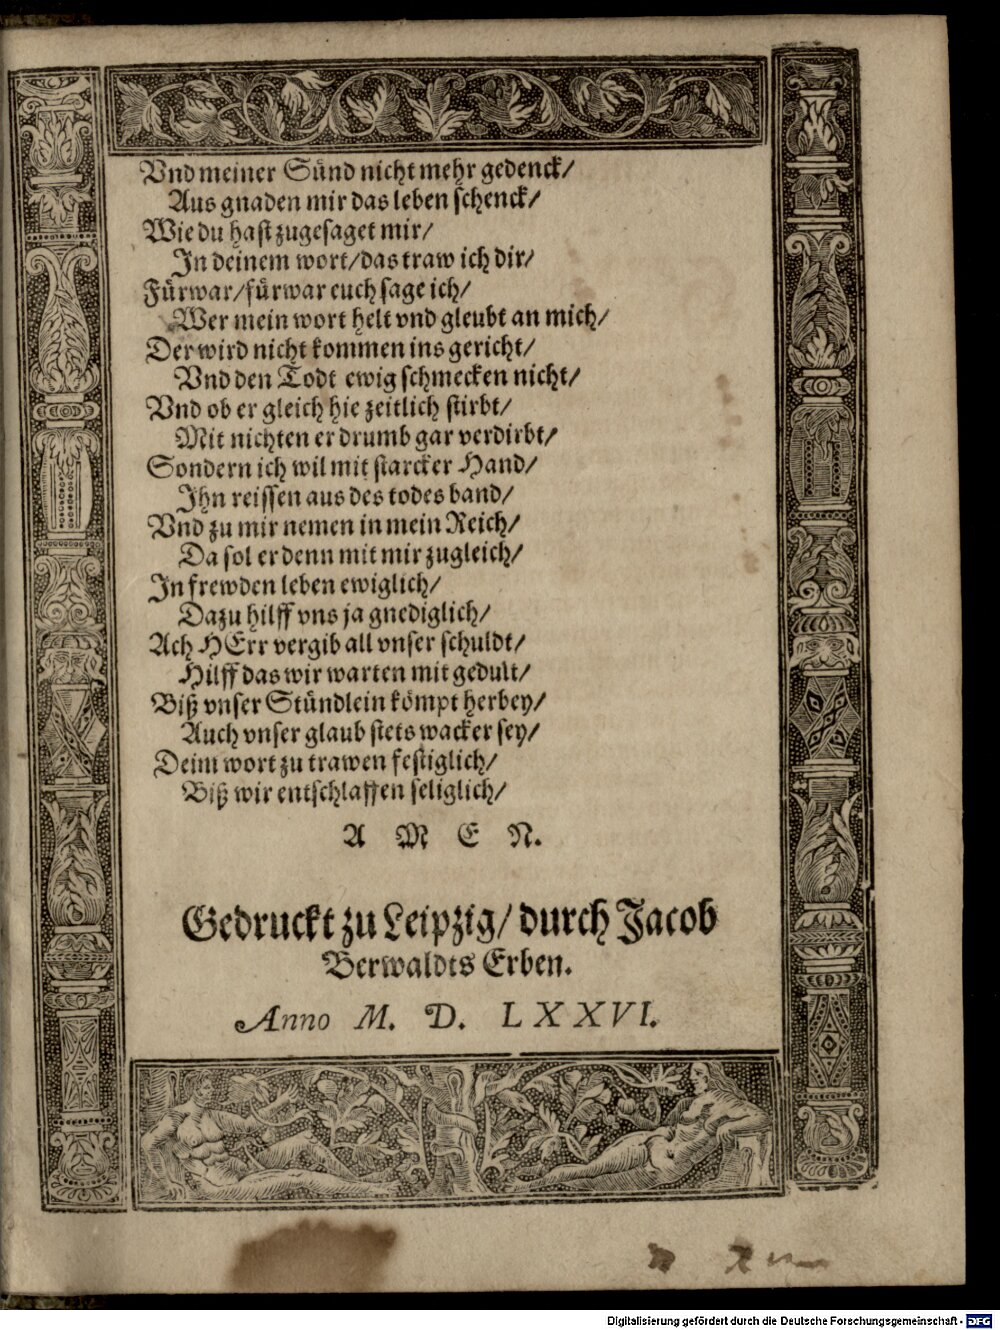 Vnd meiner Sünd nicht mehr gedenck/
Aus gnaden mir das leben schenck/
Wie du hast zugesaget mir/
In deinem wort/das traw ich dir/
Fürwar/fürwar euch sage ich/
Wer mein wort helt vnd gleubt an mich/
Der wird nicht kommen ins gericht/
Vnd den Todt ewig schmecken nicht/
Vnd ob er gleich hie zeitlich stirbt/
Mit nichten er drumb gar verdirbt/
Sondern ich wil mit starcker Hand/
Ihn reissen aus des todes band/
Vnd zu mir nemen in mein Reich/
Da sol er denn mit mir zugleich/
In frewden leben ewiglich/
Dazu hilff vns ja gnediglich/
Ach HErr vergib all vnser schuldt/
Hilff das wir warten mit gedult/
Biß vnser Stündlein kömpt herbey/
Auch vnser glaub stets wacker sey/
Deim wort zu trawen festiglich/
Biß wir entschlaffen seliglich/
A M E N.
Gedruckt zu Leipzig/ durch Jacob
Berwaldts Erben.
Anno M. D. LXXVI.
Digitalisierung gefördert durch die Deutsche Forschungsgemeinschaft - DFG